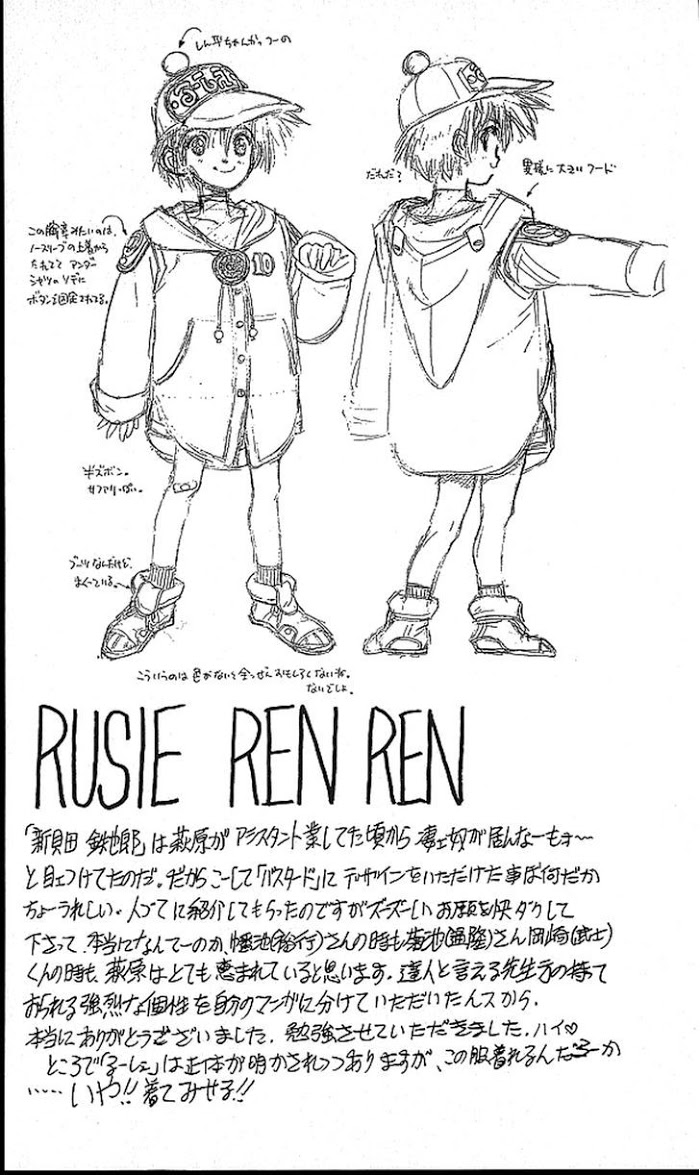 しん平ちゃんかっつーの
るーしぇ
だれだ?
異様に大きいフード
この腕章みたいのは、
ノースリーブの上着から
たれてて アンダー
シャツのソデに
ボタンで固定されてる。
10
半ズボン。
サファリっぽい。
ブーツなんだけど、
まくっている。
こういうのは色がないと全っぜんおもしろくないね。
ないでしょ。
RUSIE REN REN
「新貝田 鉄也郎」は萩原がアシスタント業してた頃から 凄ェ奴が居んなーもォ〜
と目ェつけてたのだ。だからこーして「バスタード」にデザインをいただけた事は何だか
ちょーうれしい。人づてに紹介してもらったのですがズーズーしいお願を快ダクして
下さって、本当になんてーのか、幡池(裕行)さんの時も菊池(通隆)さん岡崎(武士)
くんの時も、萩原はとても恵まれていると思います。達人と言える先生方の持て
おられる強烈な個性を自分のマンガに分けていただいたんスから。
本当にありがとうございました。勉強させていただきました。ハイ♡
ところで「るーしぇ」は正体が明かされつつありますが、この服着れるんだろーか
……いや!! 着てみせる!!